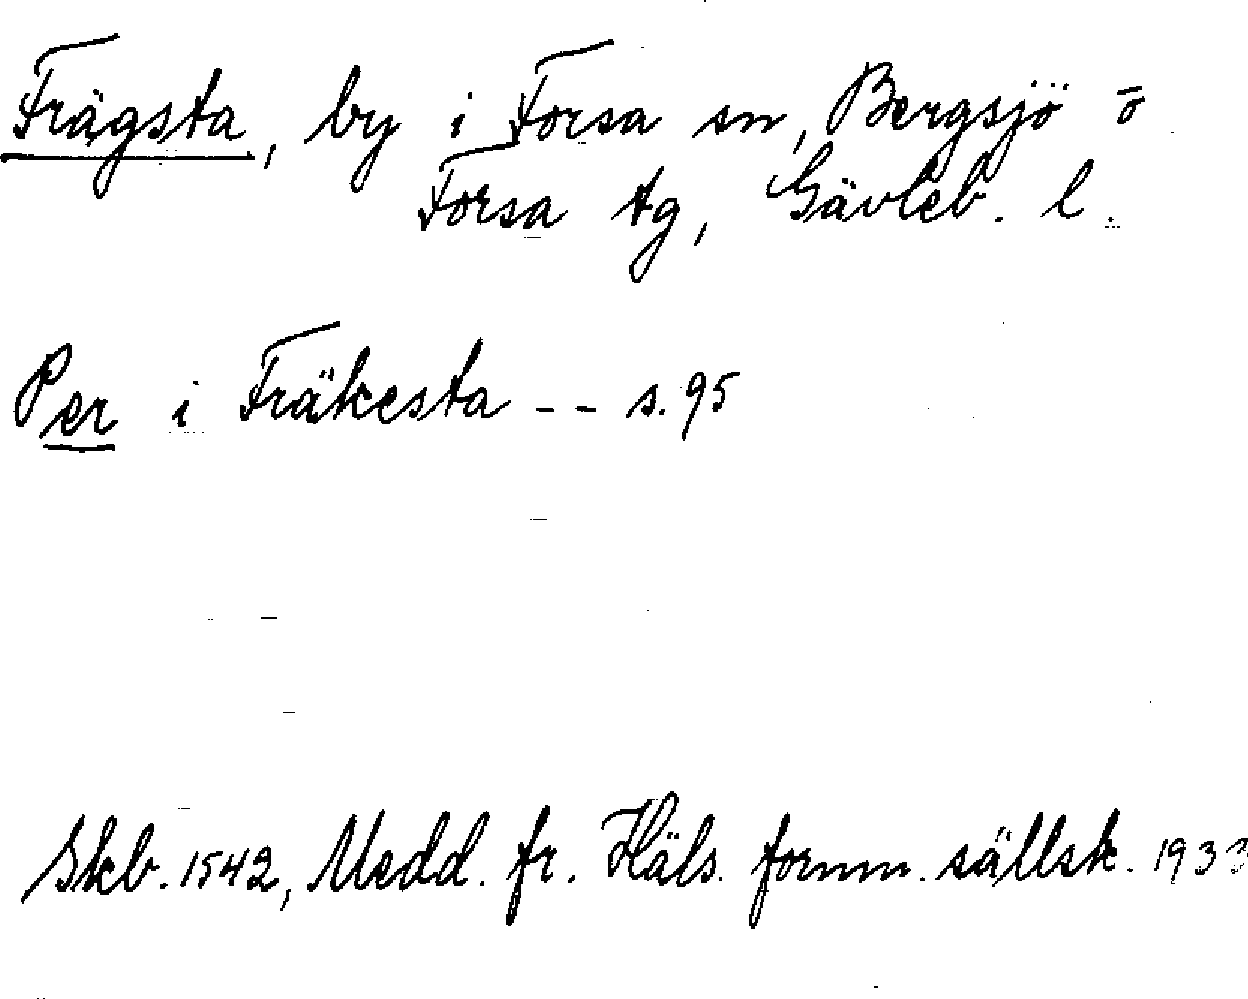 Frägsta, by i Forsa sn, Bergsjö o
Forsa tg, Gävleb. l.
Per i Fräkesta - - s. 95
Skb. 1542, Medd. fr. Häls. fornm. sällsk. 1933